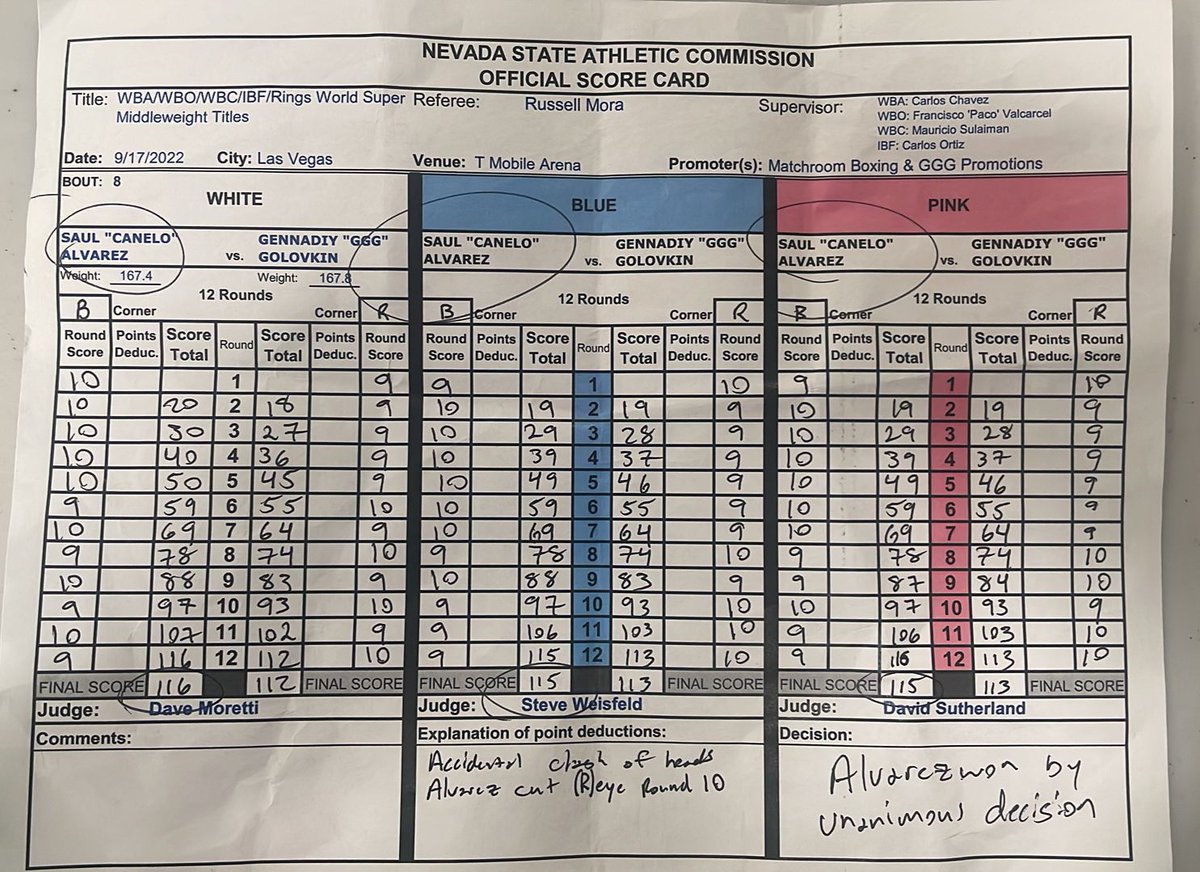 NEVADA STATE ATHLETIC COMMISSION
OFFICIAL SCORE CARD
Title: WBA/WBO/WBC/IBF/Rings World Super Middleweight Titles Referee: Russell Mora Supervisor: WBA: Carlos Chavez
WBO: Francisco 'Paco' Valcarcel
WBC: Mauricio Sulaiman
IBF: Carlos Ortiz
Date: 9/17/2022 City: Las Vegas Venue: T Mobile Arena Promoter(s): Matchroom Boxing & GGG Promotions
BOUT: 8
WHITE BLUE PINK
SAUL "CANELO" GENNADIY "GGG" SAUL "CANELO" GENNADIY "GGG" SAUL "CANELO" GENNADIY "GGG"
ALVAREZ vs. GOLOVKIN ALVAREZ vs. GOLOVKIN ALVAREZ vs. GOLOVKIN
Weight: 167.4 Weight: 167.8
12 Rounds 12 Rounds 12 Rounds
B Corner Corner R B Corner Corner R B Corner Corner R
Round Points Score Round Score Points Round Round Points Score Round Score Points Round Round Points Score Round Score Points Round
Score Deduc. Total Total Deduc. Score Score Deduc. Total Total Deduc. Score Score Deduc. Total Total Deduc. Score
10 1 9 9 1 10 9 1 10
10 20 2 18 9 10 19 2 19 9 10 19 2 19 9
10 30 3 27 9 10 29 3 28 9 10 29 3 28 9
10 40 4 36 9 10 39 4 37 9 10 39 4 37 9
10 50 5 45 9 10 49 5 46 9 10 49 5 46 9
9 59 6 55 10 10 59 6 55 9 10 59 6 55 9
10 69 7 64 9 10 69 7 64 9 10 69 7 64 9
9 78 8 74 10 9 78 8 74 10 9 78 8 74 10
10 88 9 83 9 10 88 9 83 9 9 87 9 84 10
9 97 10 93 10 9 97 10 93 10 10 97 10 93 9
10 107 11 102 9 9 106 11 103 10 9 106 11 103 10
9 116 12 112 10 9 115 12 113 10 9 12 113 10
FINAL SCORE 116 112 FINAL SCORE FINAL SCORE 115 113 FINAL SCORE FINAL SCORE 115 113 FINAL SCORE
Judge: Dave Moretti Judge: Steve Weisfeld Judge: David Sutherland
Comments: Explanation of point deductions: Decision:
Accidental clash of heads
Alvarez cut (R) eye Round 10
Alvarez won by
unanimous decision